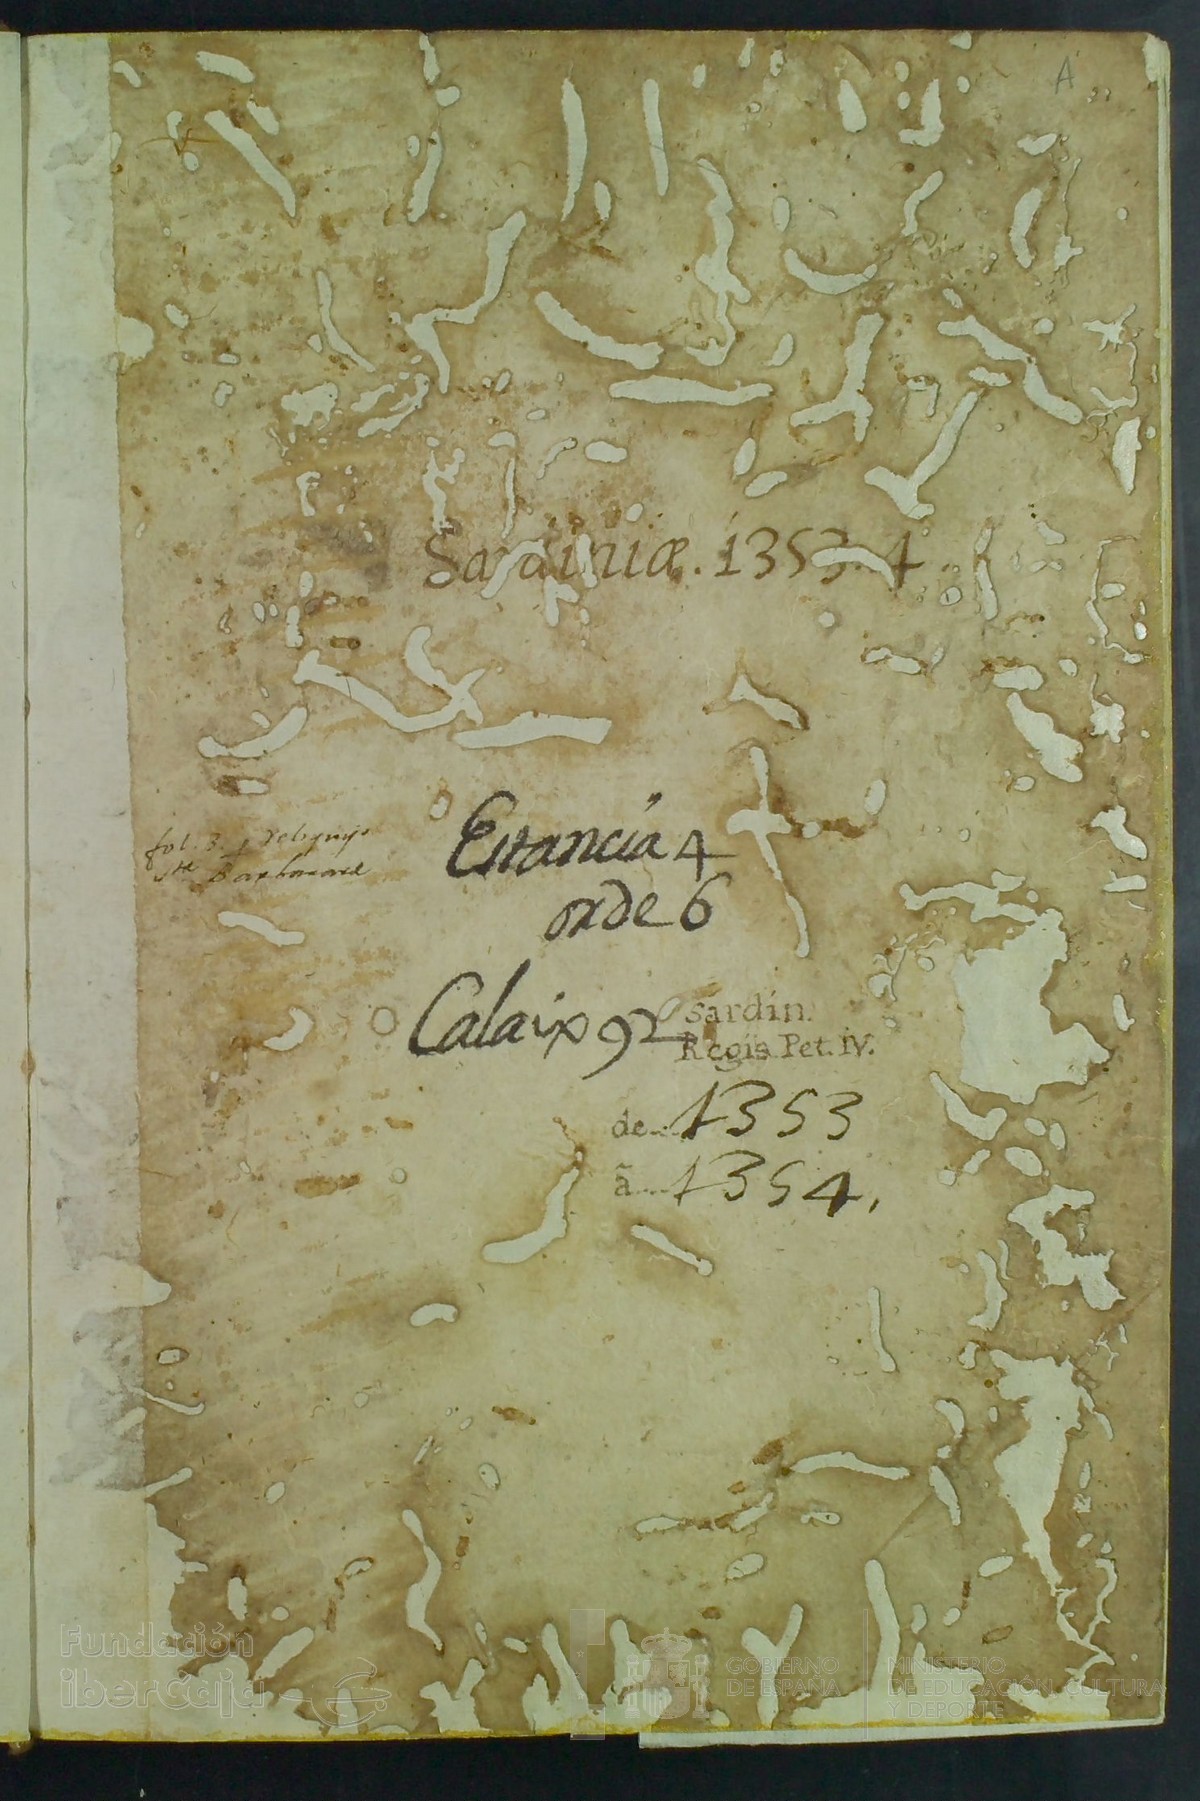 A
Sardiniæ. 1353. 4
fol. 3.
Estancia 4
orde 6
Calaix 92
Sardin.
Regis Pet. IV.
de... 1353
ã.... 1354.
Fundación
iberCaja
GOBIERNO
DE ESPAÑA
MINISTERIO
DE EDUCACIÓN, CULTURA
Y DEPORTE